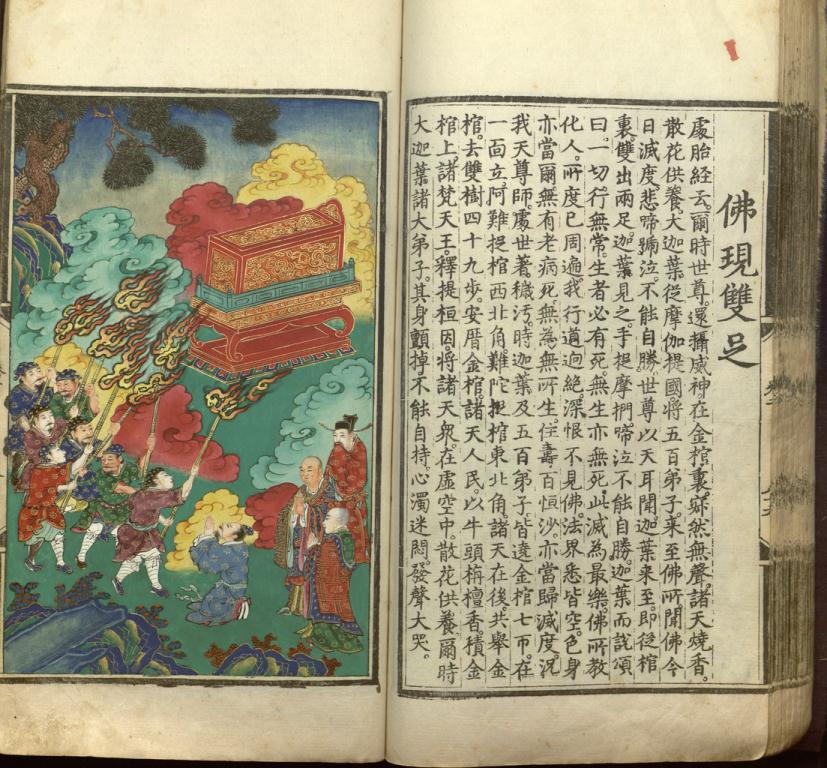 佛現雙足
處胎經云。爾時世尊。還攝威神在金棺裏。寂然無聲。諸天燒香。
散花供養。大迦葉從摩伽提國。將五百弟子。來至佛所。聞佛今
日滅度。悲啼號泣。不能自勝。世尊以天耳聞迦葉來至。即從棺
裏雙出兩足。迦葉見之。手捉摩捫。啼泣不能自勝。迦葉而說頌
曰。一切行無常。生者必有死。無生亦無死。此滅為最樂。佛所教
化人。所度已周遍。我行道迥絕。深恨不見佛。法界悉皆空。色身
亦當爾。無有老病死。無為無所生。住壽百恒沙。亦當歸滅度。況
我天尊師。處世著穢汚。時迦葉及五百弟子。皆遶金棺七帀。在
一面立。阿難捉棺西北角。難陀捉棺東北角。諸天在後。共舉金
棺。去雙樹四十九步。安厝金棺。諸天人民。以牛頭栴檀香。積金
棺上。諸梵天王。釋提桓因。將諸天衆。在虛空中。散花供養。爾時
大迦葉諸大弟子。其身顫掉不能自持。心濁迷悶。發聲大哭。